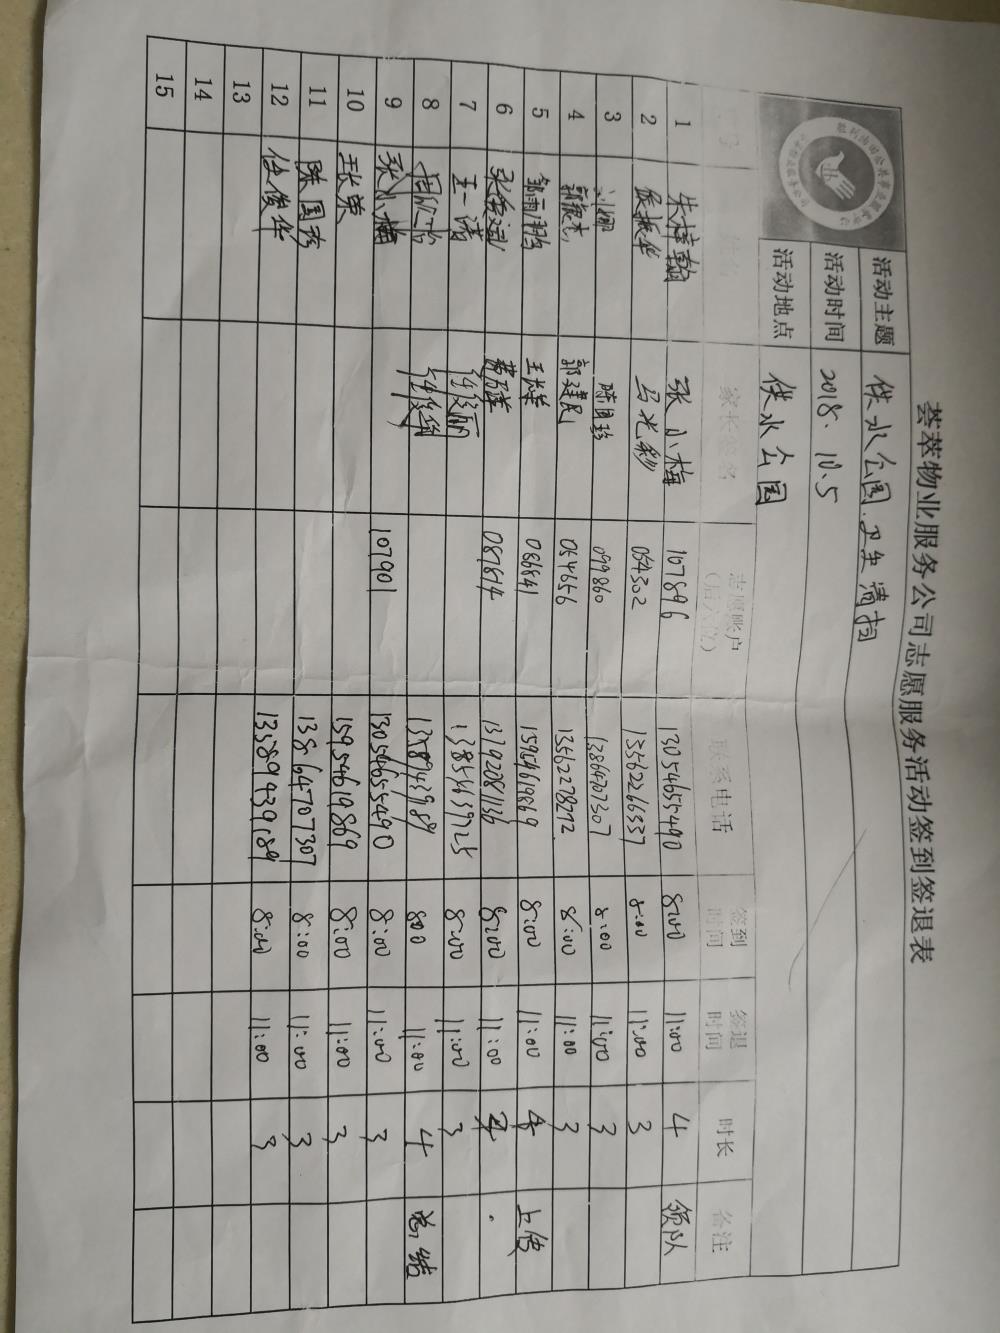 荟萃物业服务公司志愿服务活动签到签退表
活动主题 供水公园.卫生清扫
活动时间 2018.10.5
活动地点 供水公园
姓名 家长签名 志愿账户 联系电话 签到时间 签退时间 时长 备注
1 朱梓翰 张小梅 107896 13054655490 8:00 11:00 4 领队
2 侯振华 马光彩 054302 13562266337 8:00 11:00 3
3 刘娜 陈国珍 099860 13864707307 8:00 11:00 3
4 郭建民 054656 13562278272 8:00 11:00 3
5 邹雨彤 王长荣 086841 15954619869 8:00 11:00 4 上传
6 087814 13792081136 8:00 11:00
7 王一诺 任俊丽 13854659725 8:00 11:00 3
8 任俊华 800 11:00 4 总结
9 张小梅 107901 13054655490 8:00 11:00 3
10 15954619869 8:00 11:00 3
11 陈国珍 13864707307 8:00 11:00 3
12 任俊华 13589439189 8:00 11:00 3
13
14
15